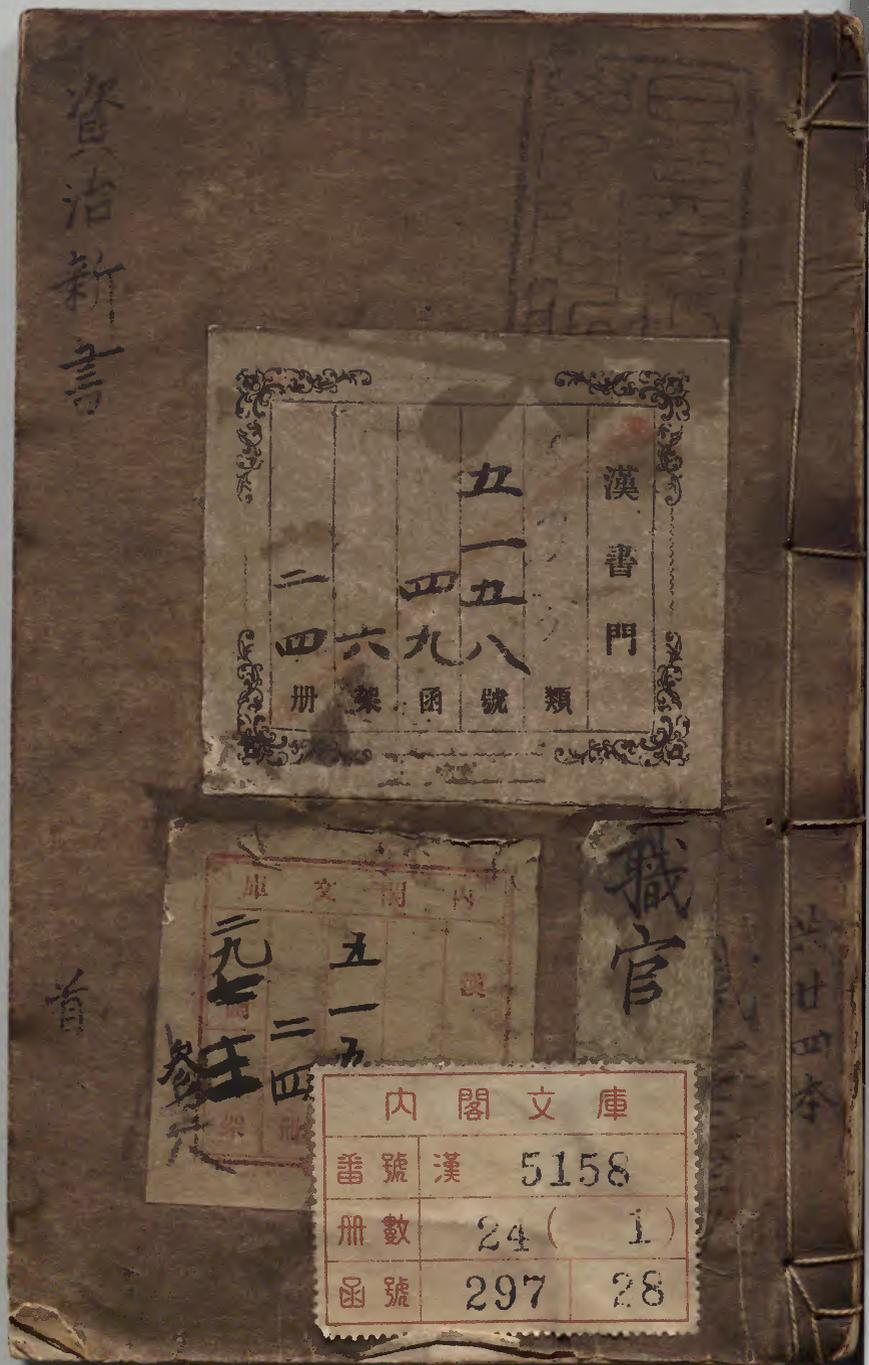 資治新書
首
漢書門
類
五一五八號
四九函
六架
二四册
職官
共廿四本
内閣文庫
漢
五一五
二四册
二九七
架
内閣文庫
番號 漢 5158
册數 24 ( 1 )
函號 297 28